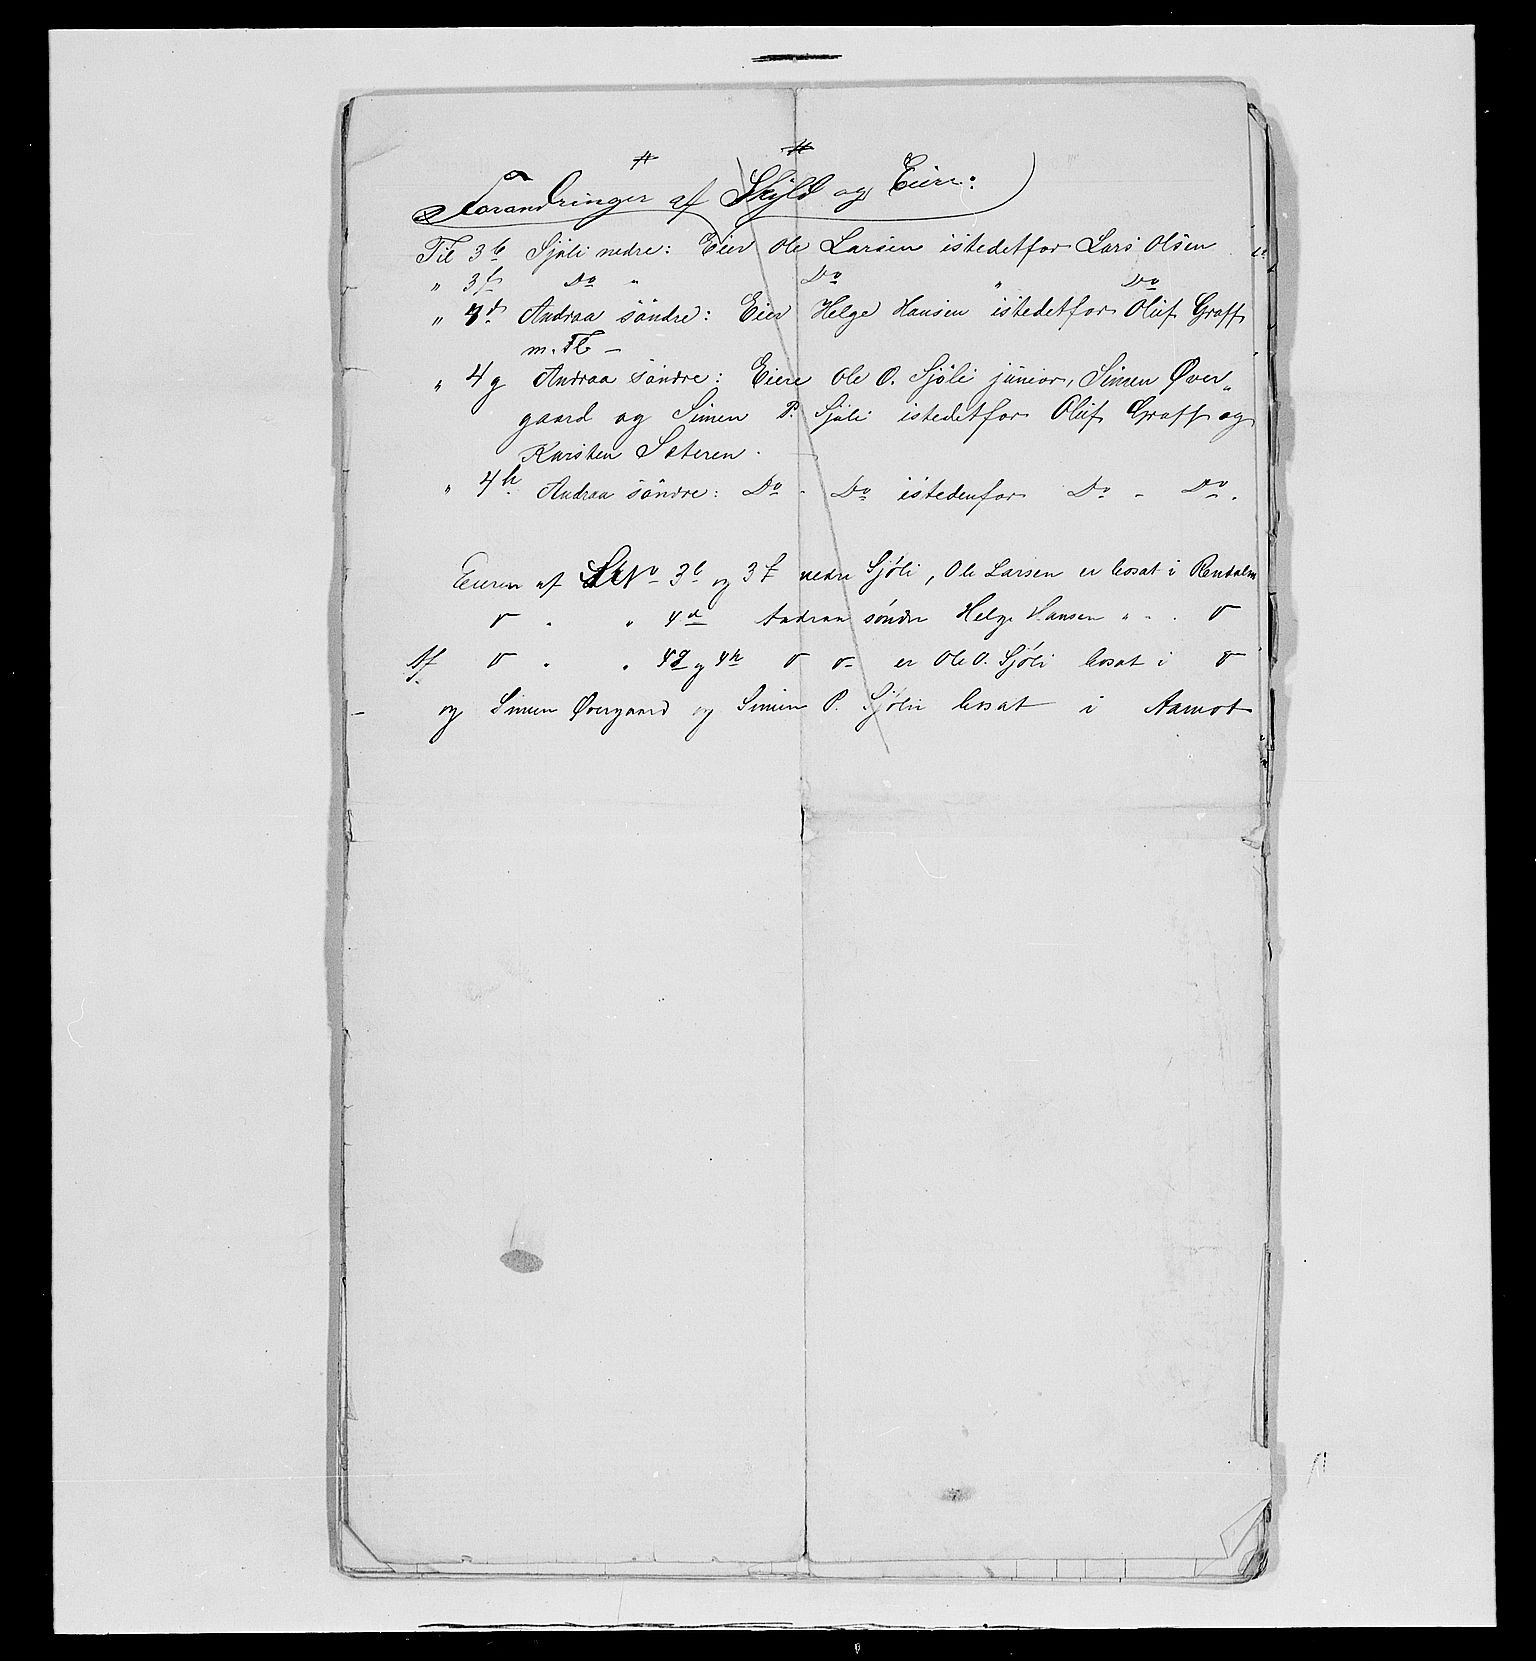 Forandringer af Skyld og Eiere:
Til 3b Sjöli nedre: Eier Ole Larsen istedetfor Lars Olsen
" 3f Do " Do " Do
" 4d Andraa söndre: Eier Helge Hansen istedetfor Oluf Graff
m. Fl –
" 4g Andraa söndre: Eiere Ole O. Sjöli junior, Simen Øver„
gaard og Simen P. Sjöli istedetfor Oluf Graff og
Karsten Sæteren.
" 4h Andraa söndre: Do - Do istedenfor Do - Do.
Eieren af LNo 3b og 3f nedre Sjöli, Ole Larsen er bosat i Rendalen
" " 4d Andraa söndre Helge Hansen " - .
Af " " 4g og 4h er Ole O. Sjöli bosat i
og Simen Øvergaard og Simen P. Sjölii bosat i Aamot